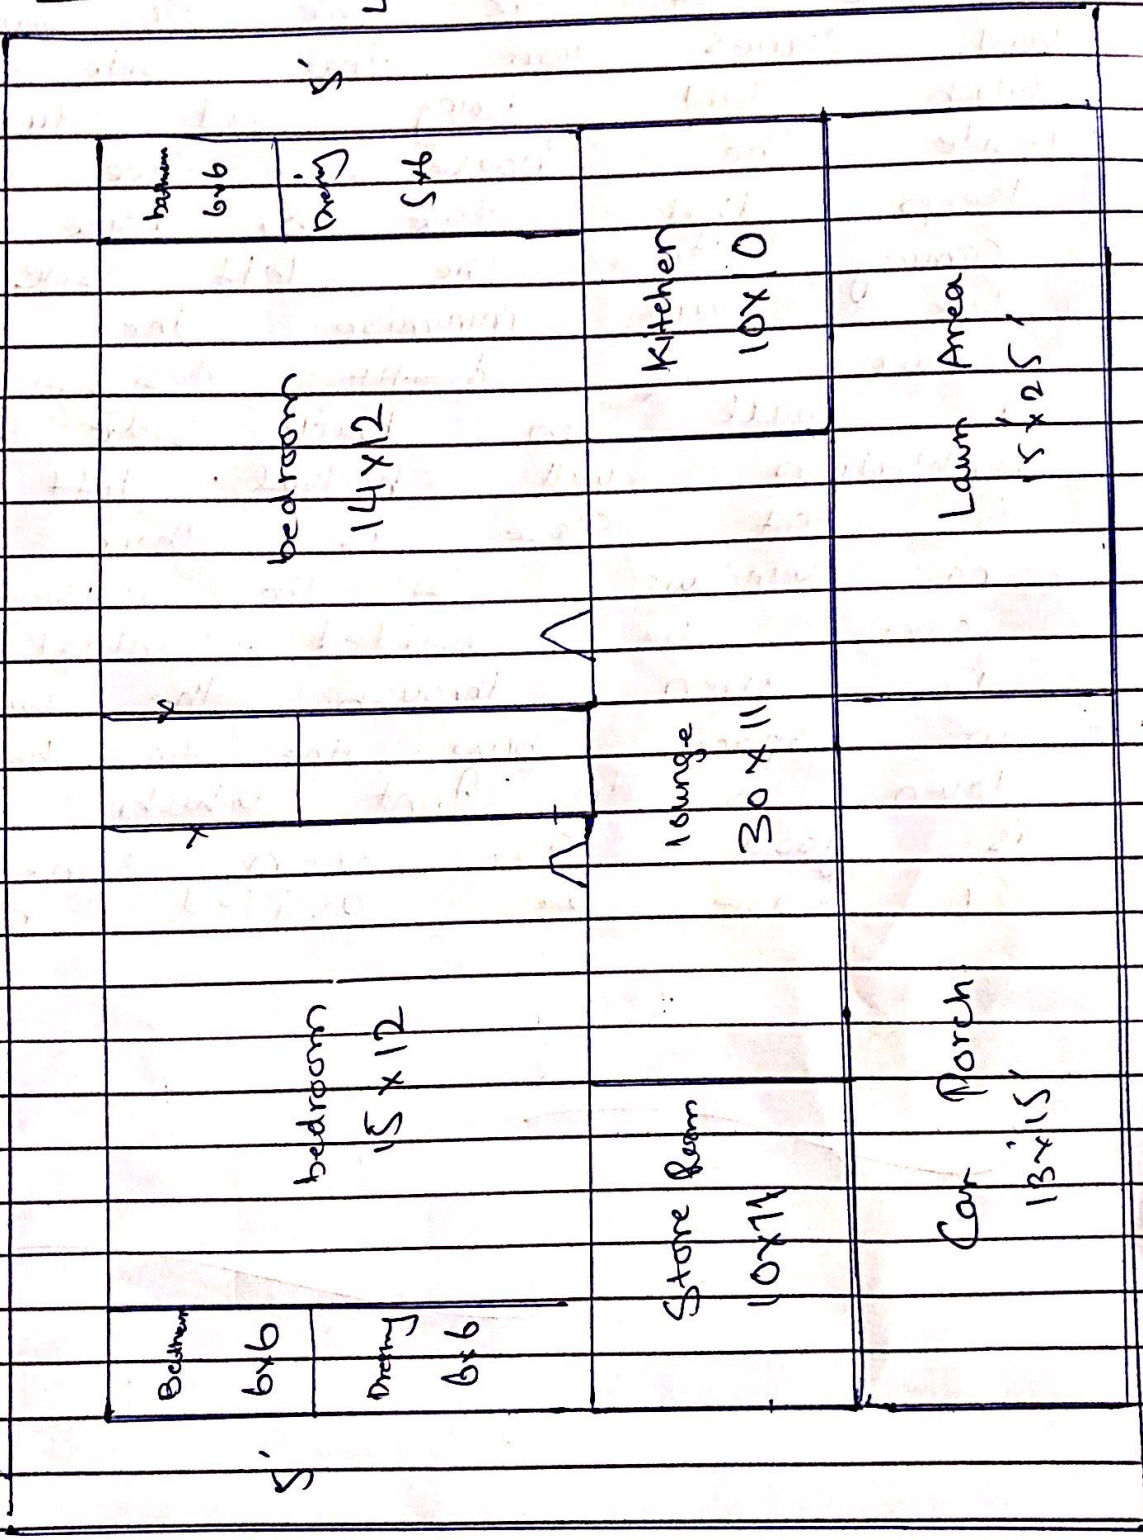 5'
Bathroom
6x6
Dressing
6x6
bedroom
15 x 12
bedroom
14 x 12
bathroom
6x6
Dressing
5x6
5'
Store Room
10x11
lounge
30 x 11
Kitchen
10x10
Car Porch
13'x15'
Lawn Area
15'x25'